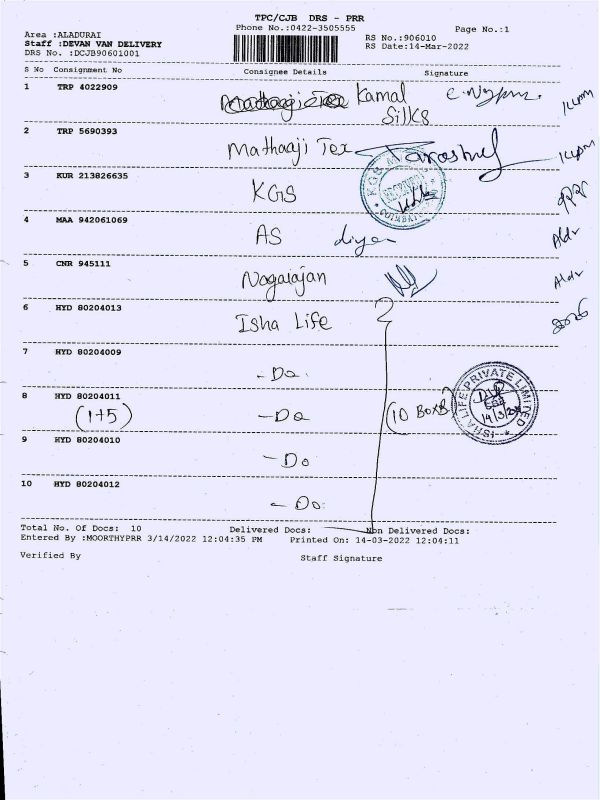 TPC/CJB DRS - PRR
Phone No.:0422-3505555
Page No.:1
Area :ALADURAI
RS No.:906010
Staff :DEVAN VAN DELIVERY
RS Date:14-Mar-2022
DRS No. :DCJB90601001
S No Consignment No Consignee Details Signature
1 TRP 4022909 Kamal
Silks
2 TRP 5690393 Mathaaji Tex
3 KUR 213826635 KGS
4 MAA 942061069 AS
5 CNR 945111 Nagarajan
6 HYD 80204013 Isha Life
7 HYD 80204009 - Do
8 HYD 80204011 - Do (10 Box)
(1+5)
9 HYD 80204010 - Do
10 HYD 80204012 - Do
ISHA LIFE PRIVATE LIMITED
Total No. Of Docs: 10 Delivered Docs: Non Delivered Docs:
Entered By :MOORTHYPRR 3/14/2022 12:04:35 PM Printed On: 14-03-2022 12:04:11
Verified By Staff Signature